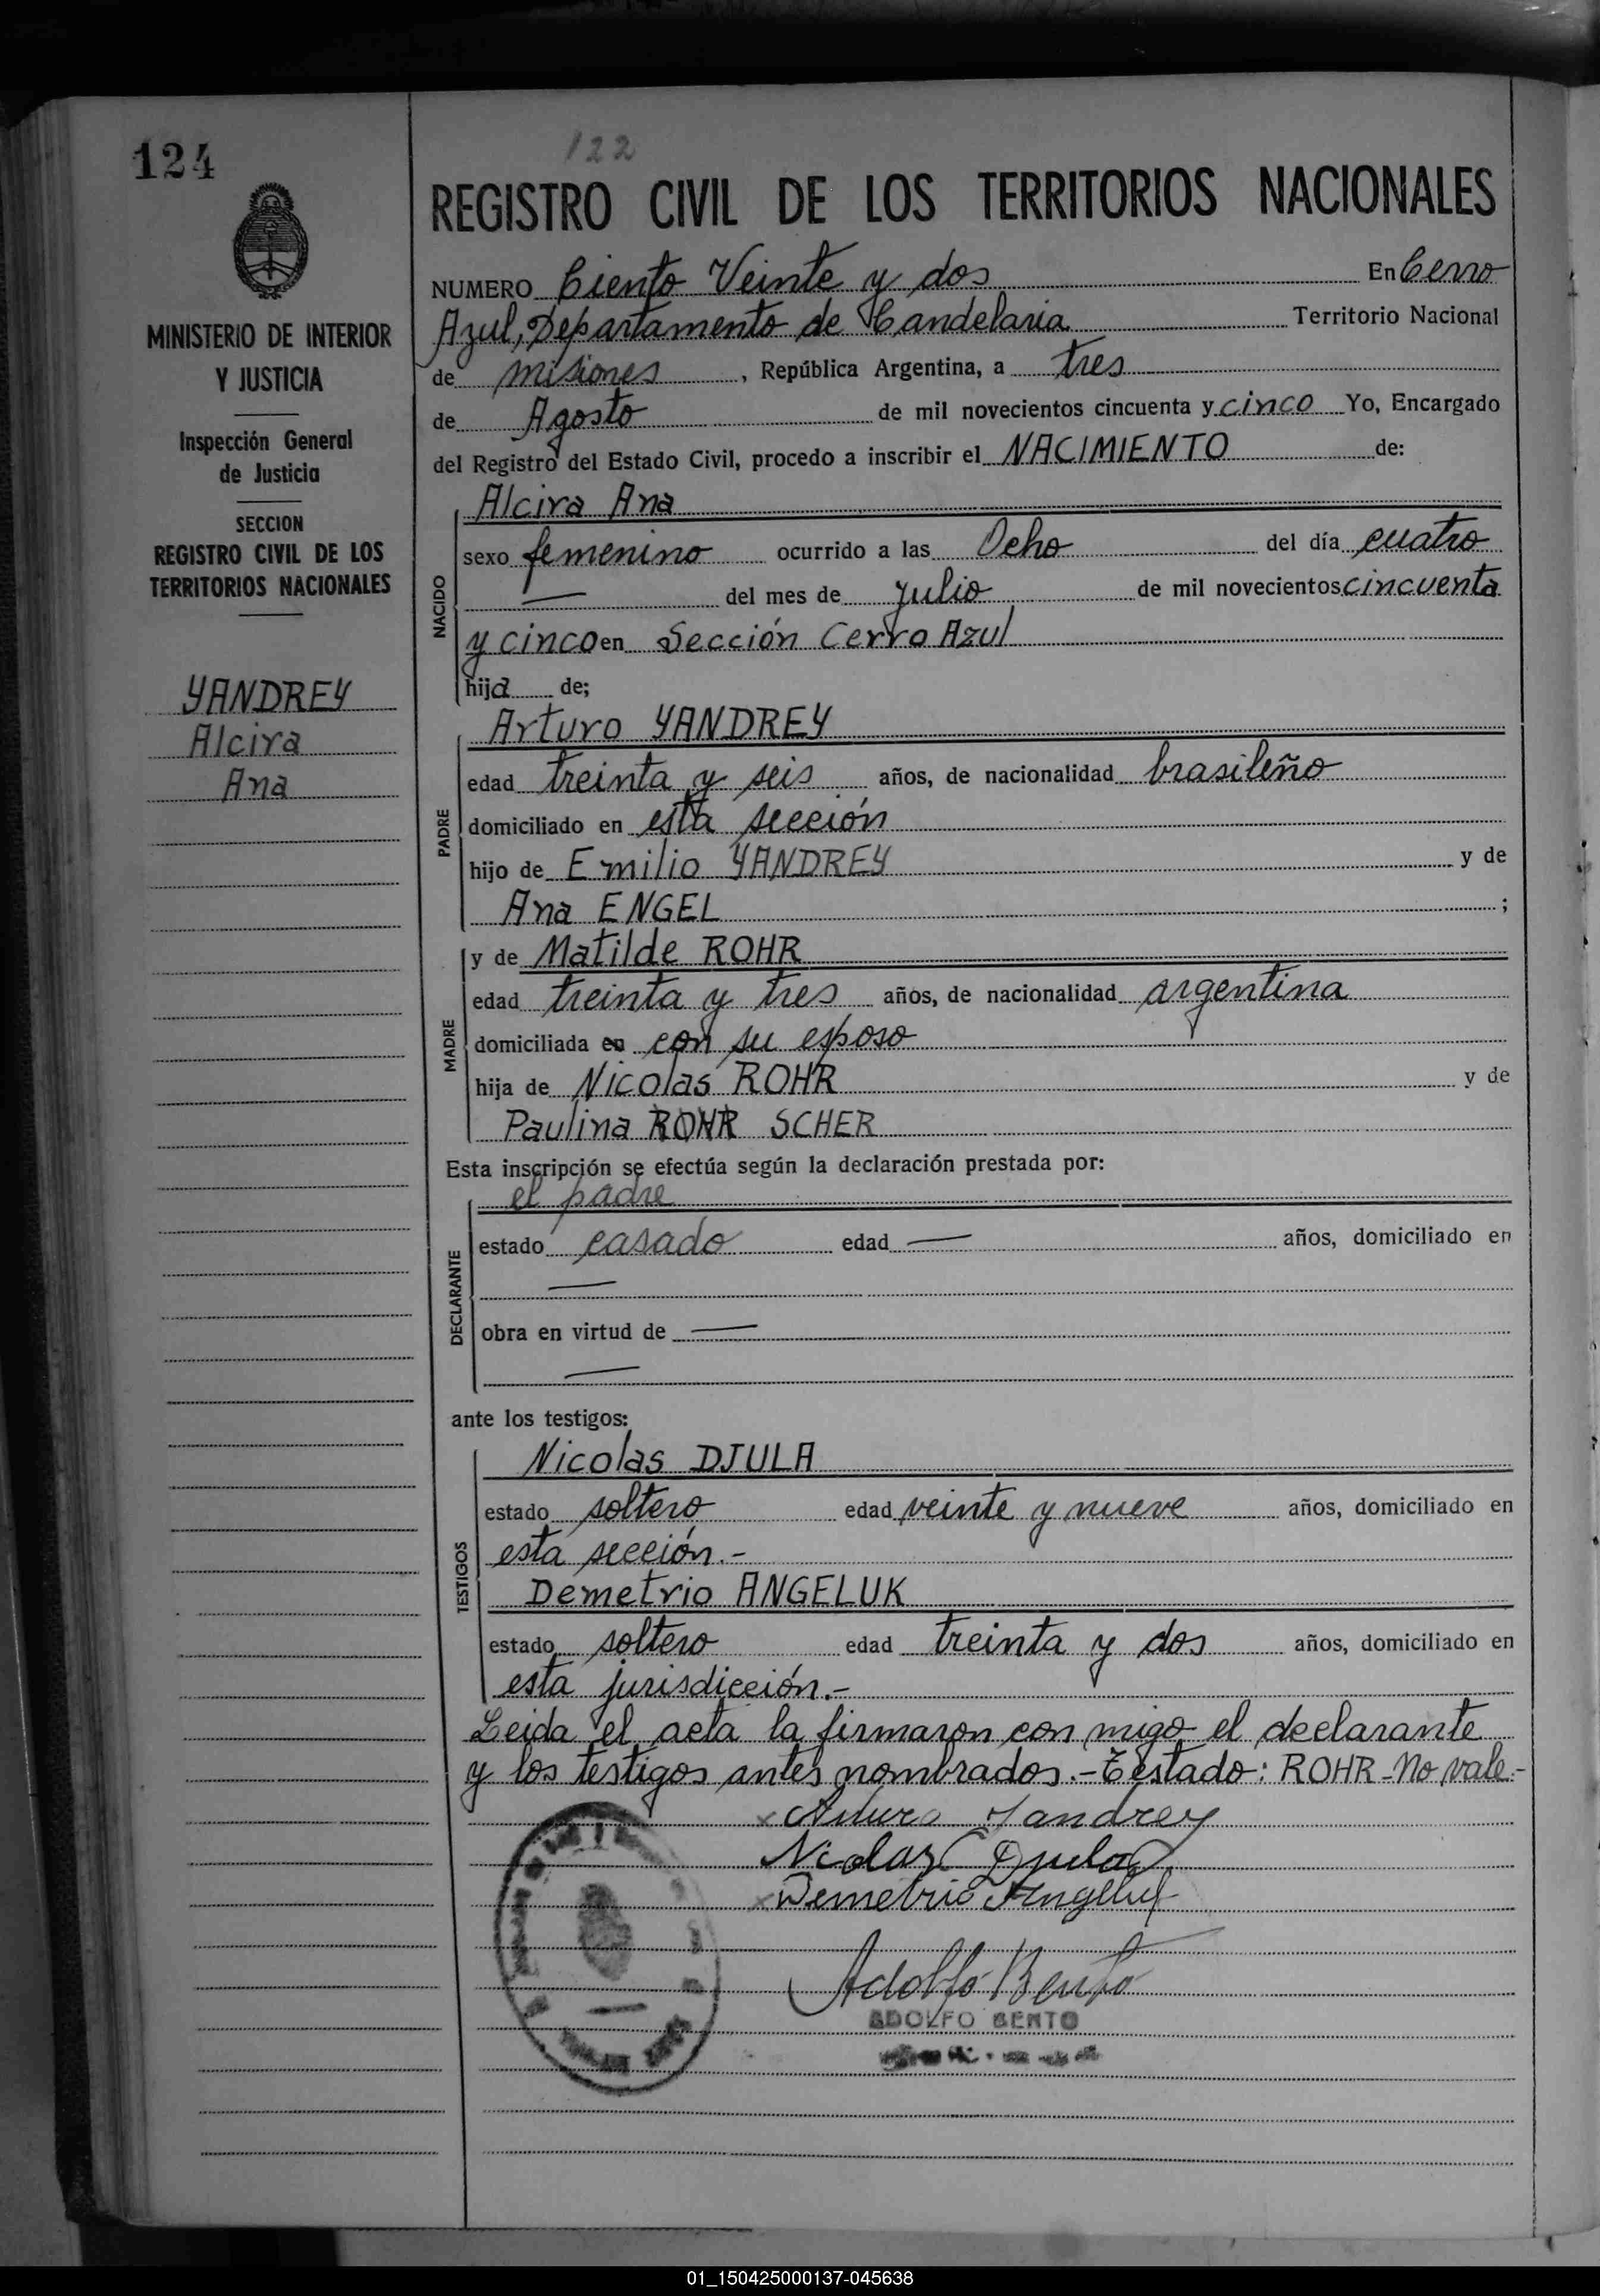 124
122
REGISTRO CIVIL DE LOS TERRITORIOS NACIONALES
MINISTERIO DE INTERIOR
Y JUSTICIA
Inspección General
de Justicia
SECCION
REGISTRO CIVIL DE LOS
TERRITORIOS NACIONALES
YANDREY
Alcira
Ana
NUMERO Ciento Veinte y dos En Cerro
Azul, Departamento de Candelaria Territorio Nacional
de Misiones, República Argentina, a tres
de Agosto de mil novecientos cincuenta y cinco Yo, Encargado
del Registro del Estado Civil, procedo a inscribir el NACIMIENTO de:
NACIDO
Alcira Ana
sexo femenino ocurrido a las Ocho del día cuatro
— del mes de julio de mil novecientos cincuenta
y cinco en Sección Cerro Azul
hija de;
PADRE
Arturo YANDREY
edad treinta y seis años, de nacionalidad brasileño
domiciliado en esta sección
hijo de Emilio YANDREY y de
Ana ENGEL ;
MADRE
y de Matilde ROHR
edad treinta y tres años, de nacionalidad argentina
domiciliada en con su esposo
hija de Nicolas ROHR y de
Paulina ROHR SCHER
Esta inscripción se efectúa según la declaración prestada por:
DECLARANTE
el padre
estado casado edad — años, domiciliado en
—
obra en virtud de —
—
ante los testigos:
TESTIGOS
Nicolas DJULA
estado soltero edad veinte y nueve años, domiciliado en
esta sección.-
Demetrio ANGELUK
estado soltero edad treinta y dos años, domiciliado en
esta jurisdicción.-
Leida el acta la firmaron con migo el declarante
y los testigos antes nombrados.-Testado: ROHR-No vale.-
x Arturo Yandrey
Nicolas Djula
x Demetrio Angeluk
Adolfo Bento
ADOLFO BENTO
01_150425000137-045638